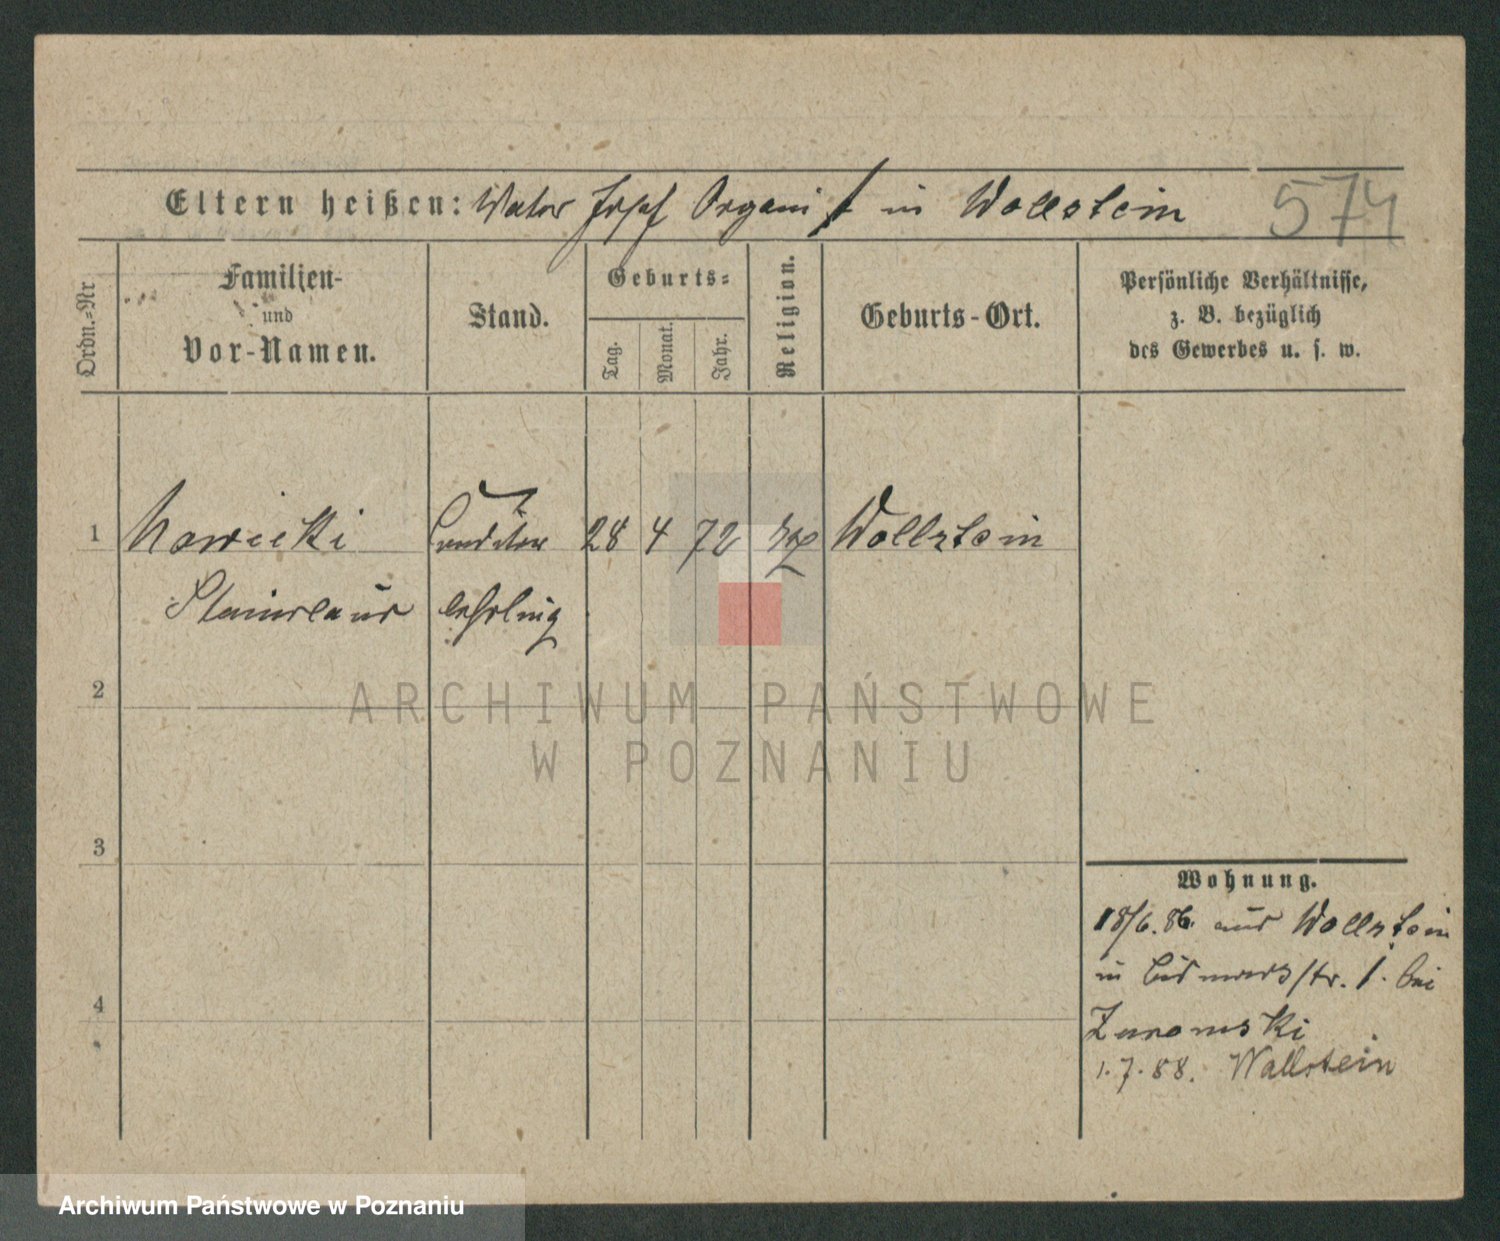 Eltern heißen: Vater Josef Organist in Wollstein 574
Ordn.=Nr
Familien-
und
Vor-Namen.
Stand.
Geburts=
Tag.
Monat.
Jahr.
Religion.
Geburts-Ort.
Persönliche Verhältnisse,
z. B. bezüglich
des Gewerbes u. s. w.
1 Nowicki Conditor 28 4 72 Wollstein
Stanislaus lehrling
2
3
4
Wohnung.
18/6. 86. aus Wollstein
in Bismarckstr. 1. bei
Zuromski
1.7.88. Wollstein
ARCHIWUM PAŃSTWOWE
W POZNANIU
Archiwum Państwowe w Poznaniu